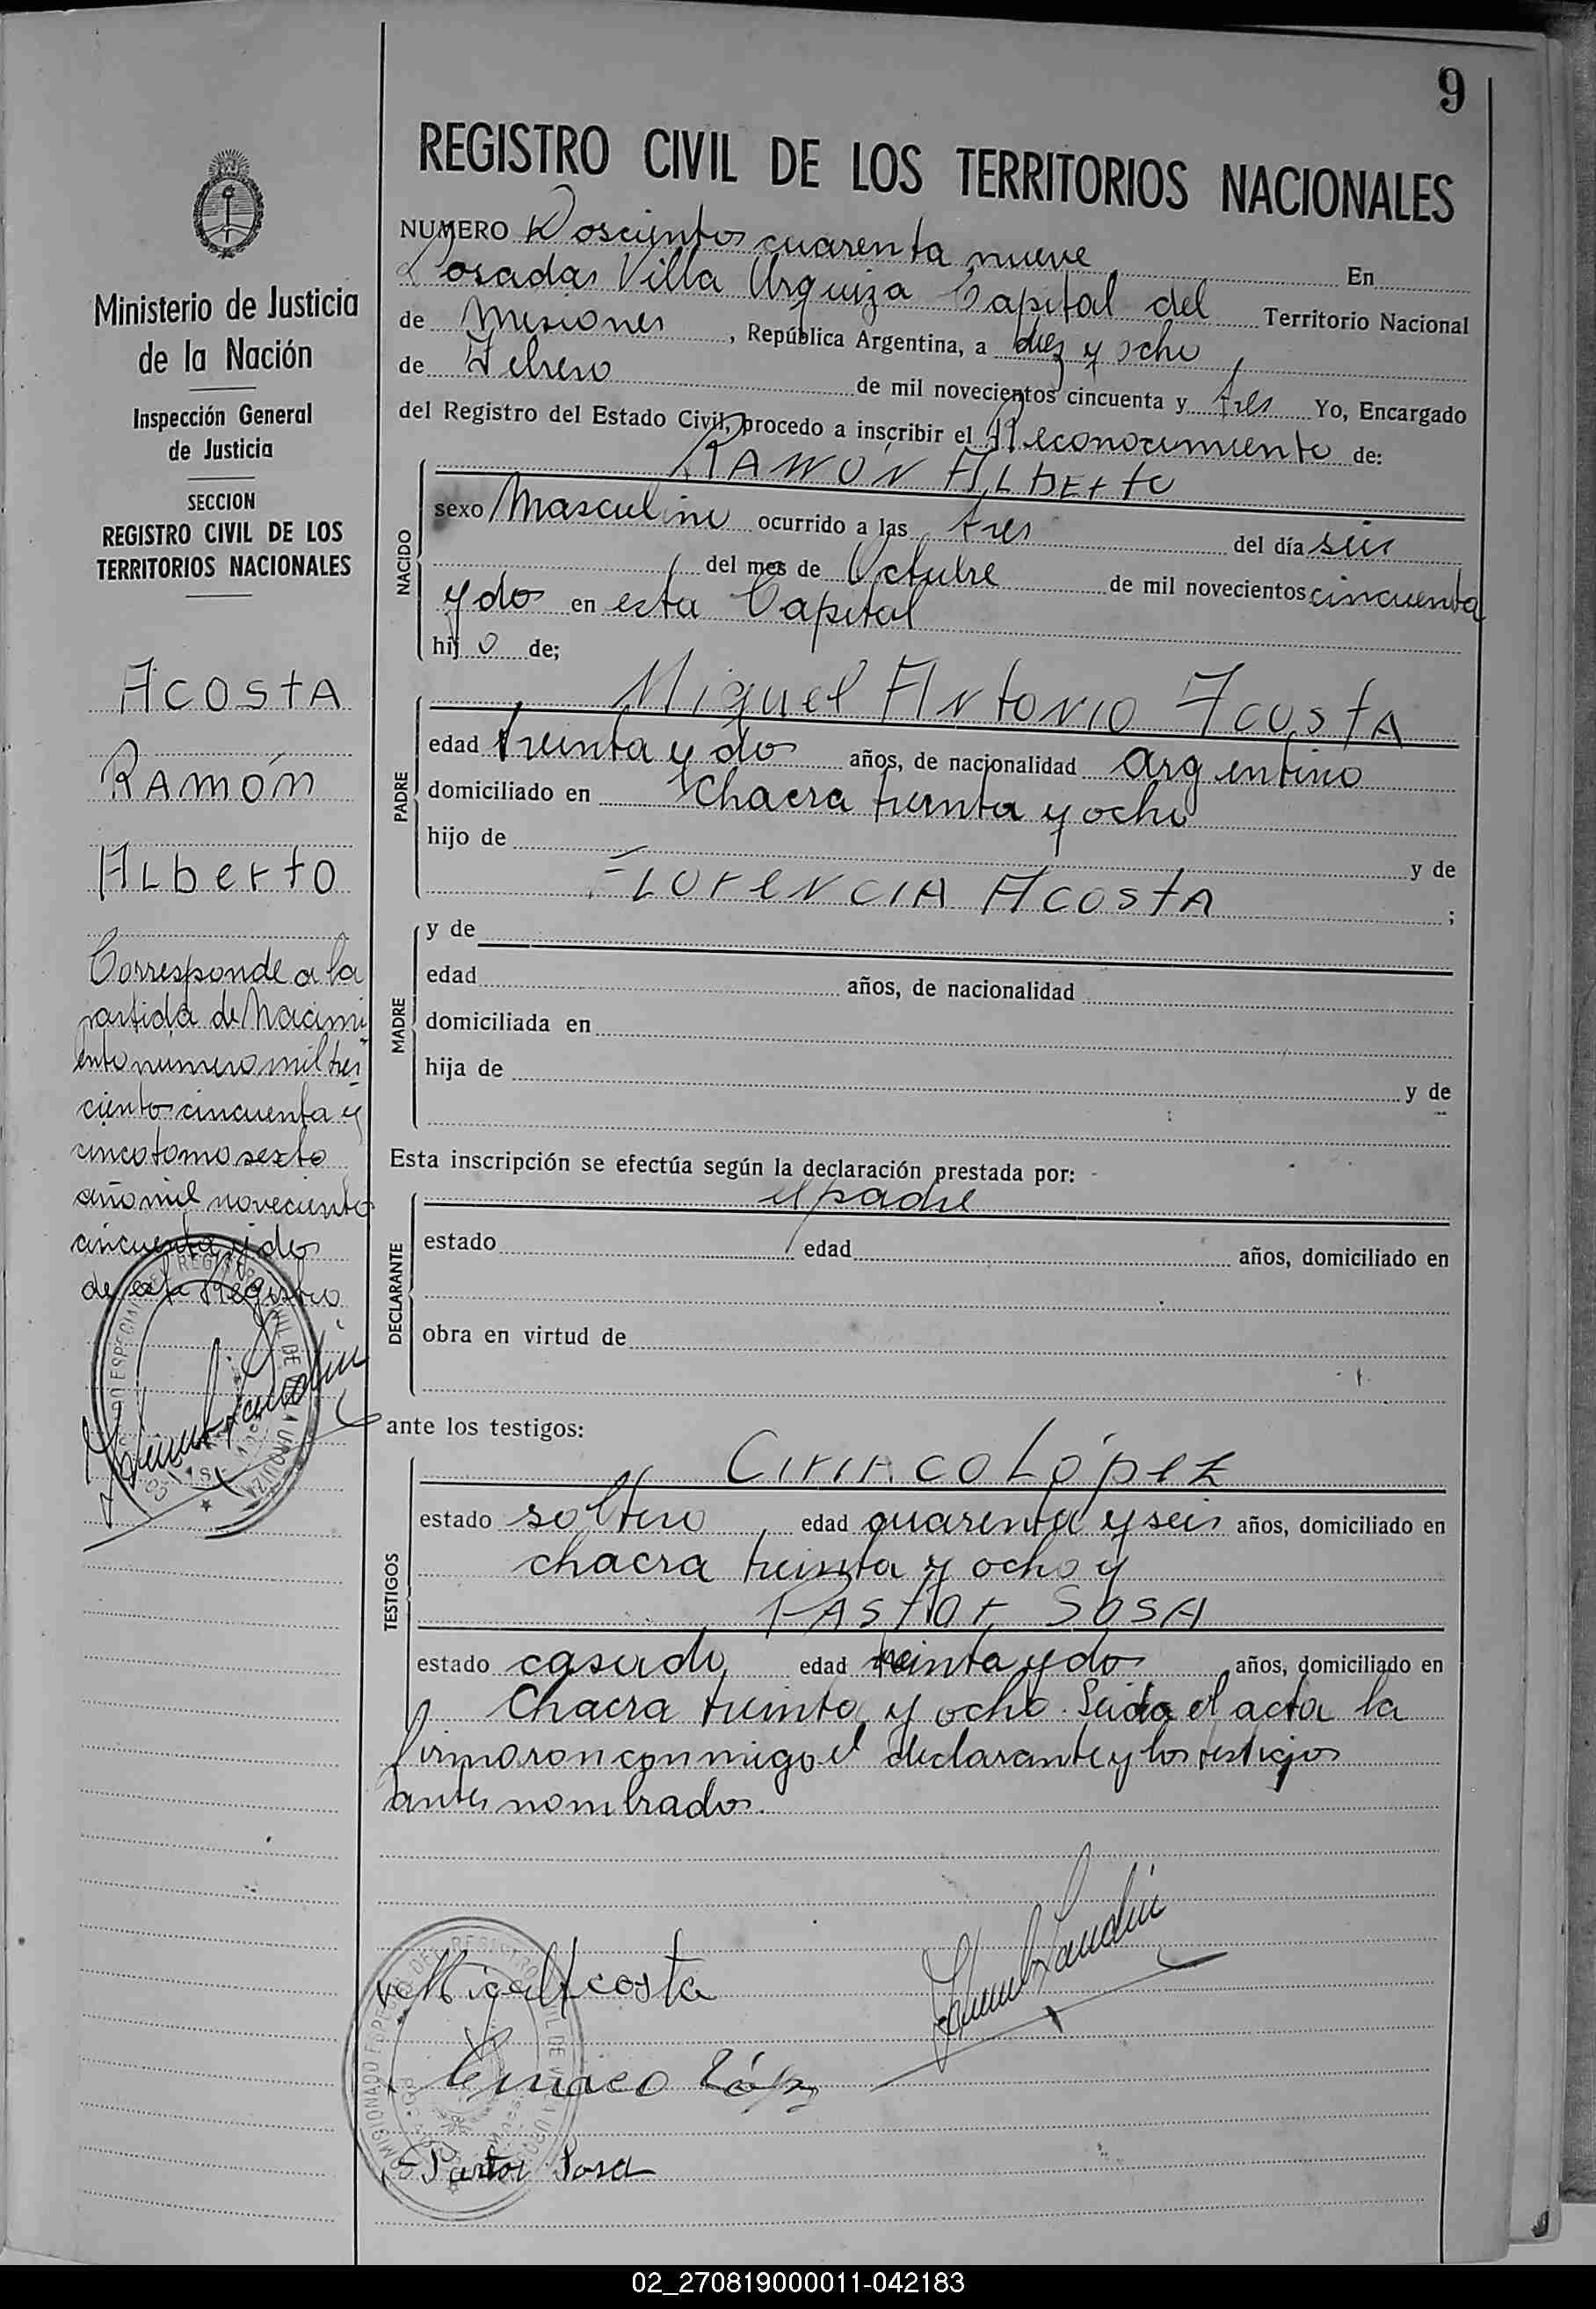 9
REGISTRO CIVIL DE LOS TERRITORIOS NACIONALES
Ministerio de Justicia
de la Nación
Inspección General
de Justicia
SECCION
REGISTRO CIVIL DE LOS
TERRITORIOS NACIONALES
ACOSTA
RAMÓN
ALberto
Corresponde a la
partida de Nacimi
ento número mil tres
ciento cincuenta y
cinco tomo sexto
año mil noveciento
cincuenta y dos
de este Registro
NUMERO Doscientos cuarenta nueve En
Posadas Villa Urquiza Capital del
de Misiones, República Argentina, a diez y ocho Territorio Nacional
de Febrero de mil novecientos cincuenta y tres Yo, Encargado
del Registro del Estado Civil, procedo a inscribir el Reconocimiento de:
NACIDO
RAMÓN ALberto
sexo Masculino ocurrido a las tres del día seis
del mes de Octubre de mil novecientos cincuenta
y dos en esta Capital
hijo de;
PADRE
Miguel Antonio Acosta
edad treinta y dos años, de nacionalidad argentino
domiciliado en Chacra treinta y ocho
hijo de y de
Florencia Acosta ;
MADRE
y de
edad años, de nacionalidad
domiciliada en
hija de y de
Esta inscripción se efectúa según la declaración prestada por:
DECLARANTE
el padre
estado edad años, domiciliado en
obra en virtud de
ante los testigos:
TESTIGOS
Ciriaco López
estado soltero edad cuarenta y seis años, domiciliado en
chacra treinta y ocho y
Pastor Sosa
estado casado edad treinta y dos años, domiciliado en
Chacra treinta y ocho. Leida el acta la
firmaron conmigo el declarante y los testigos
antes nombrados.
Miguel Acosta
Ciriaco López
Pastor Sosa
02_270819000011-042183